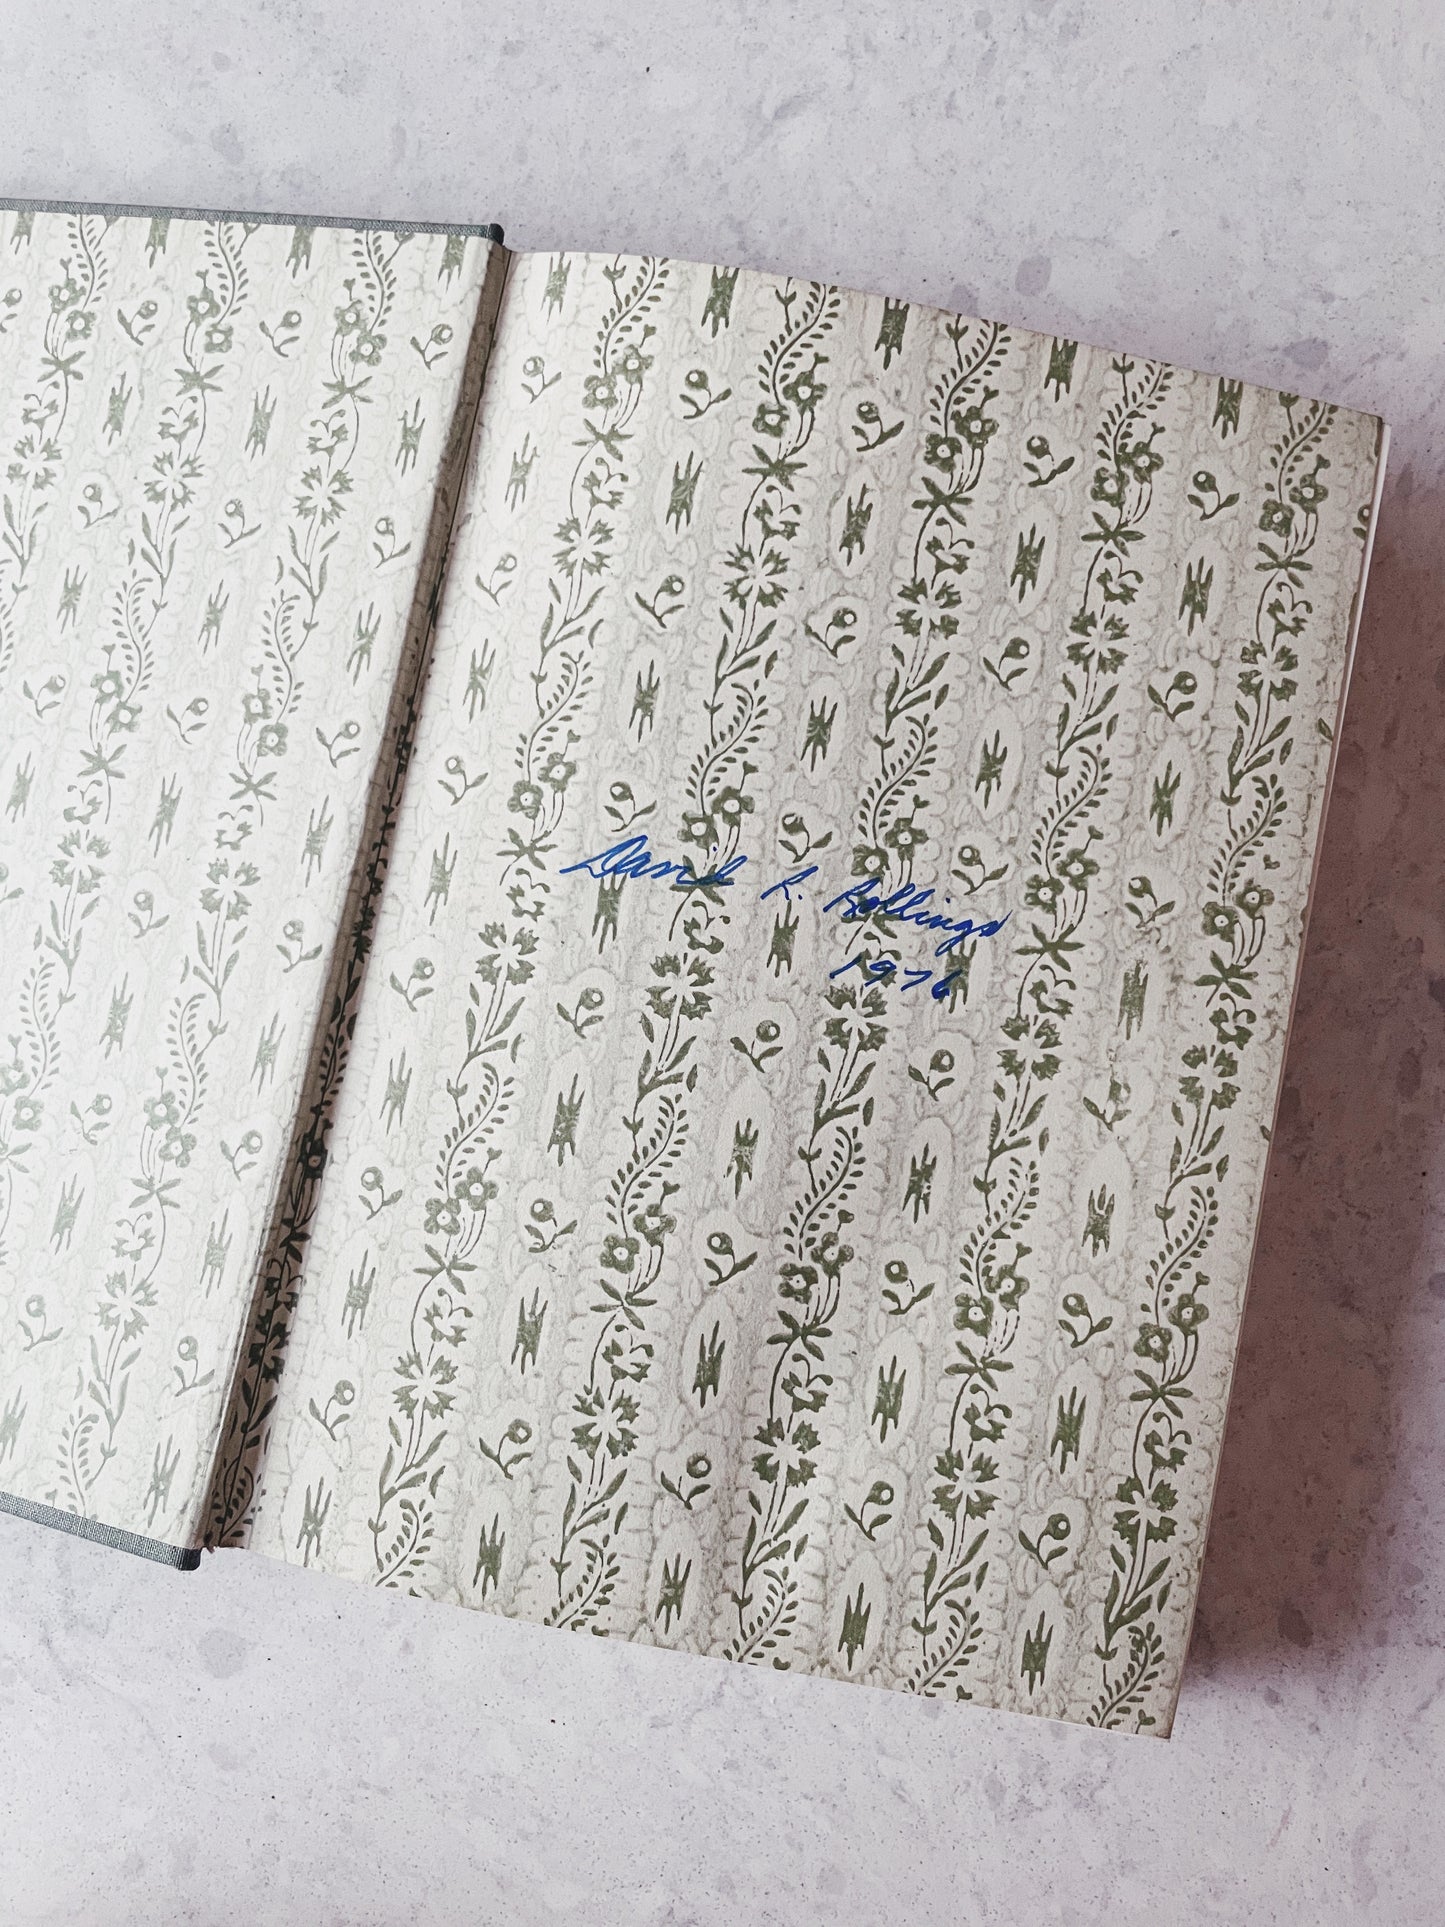 David R. Rollings
1976